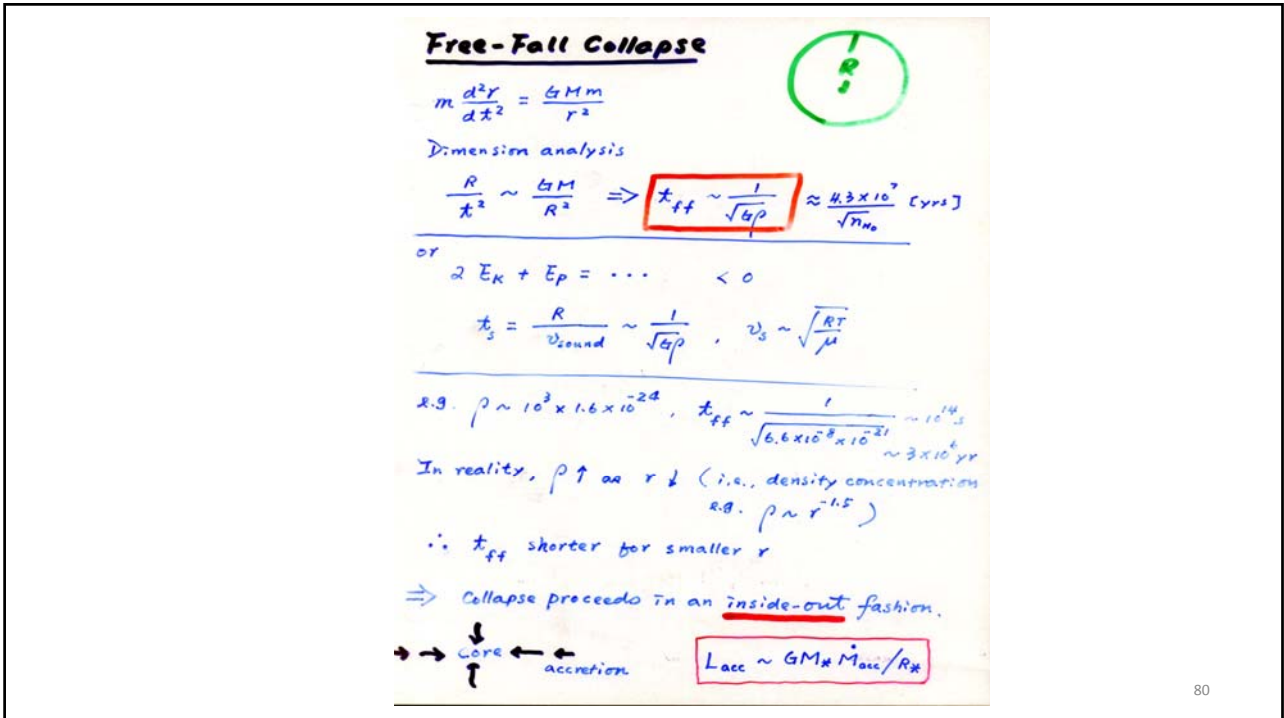 Free-Fall Collapse
R
m d²r/dt² = GMm/r²
Dimension analysis
R/t² ~ GM/R² => t_ff ~ 1/√(Gρ) ≈ 4.3×10⁷/√n_H₀ [yrs]
or
2 E_K + E_P = ··· < 0
t_s = R/v_sound ~ 1/√(Gρ) , v_s ~ √(RT/μ)
e.g. ρ ~ 10³ × 1.6 × 10⁻²⁴ , t_ff ~ 1/√(6.6×10⁻⁸×10⁻²¹) ~ 10¹⁴ s
~ 3×10⁶ yr
In reality, ρ ↑ as r ↓ (i.e., density concentration
e.g. ρ ~ r⁻¹·⁵ )
∴ t_ff shorter for smaller r
=> Collapse proceeds in an inside-out fashion.
→ → Core ← ←
accretion
L_acc ~ GM* Ṁ_acc/R*
80